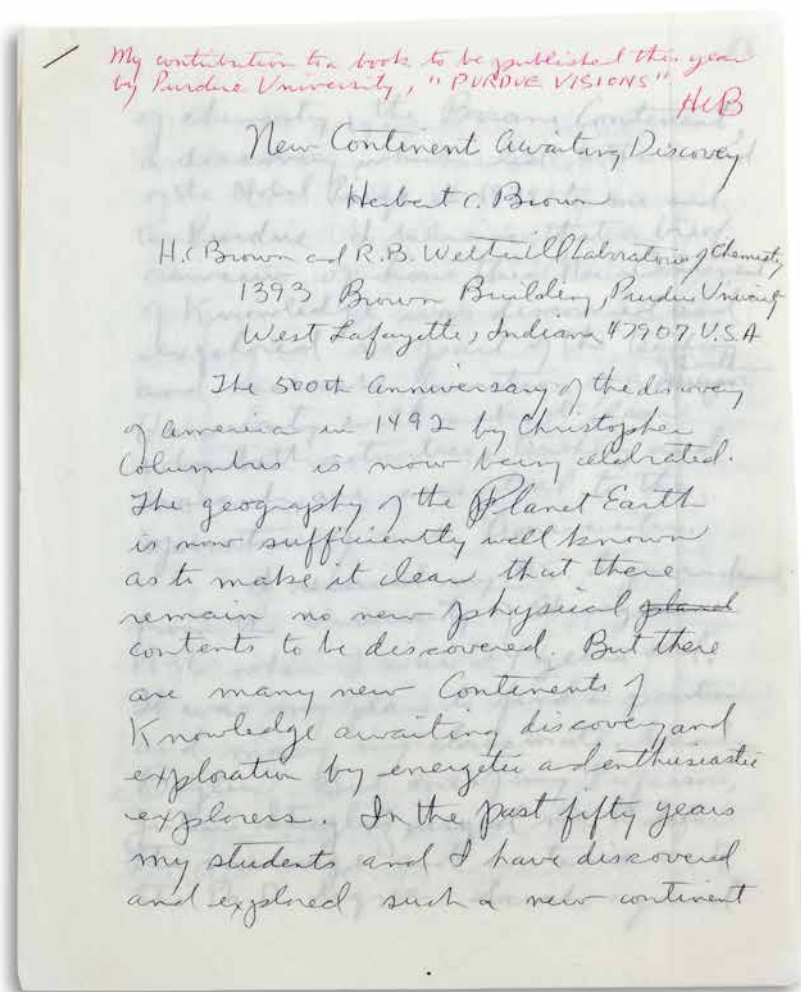 My contribution to a book to be published this year
by Purdue University, "PURDUE VISIONS"
HCB
New Continent Awaiting Discovey
Herbert C. Brown
H.C Brown and R.B. Wetherill Laboratories of Chemistry
1393 Brown Building, Purdue University
West Lafayette, Indiana 47907 U.S.A
The 500th Anniversary of the discovery
of America in 1492 by Christopher
Columbus is now being celebrated.
The geography of the Planet Earth
is now sufficiently well known
as to make it clear that there
remain no new physical
contents to be discovered. But there
are many new Continents of
Knowledge awaiting discovery and
exploration by energetic and enthusiastic
explorers. In the past fifty years
my students and I have discovered
and explored such a new continent